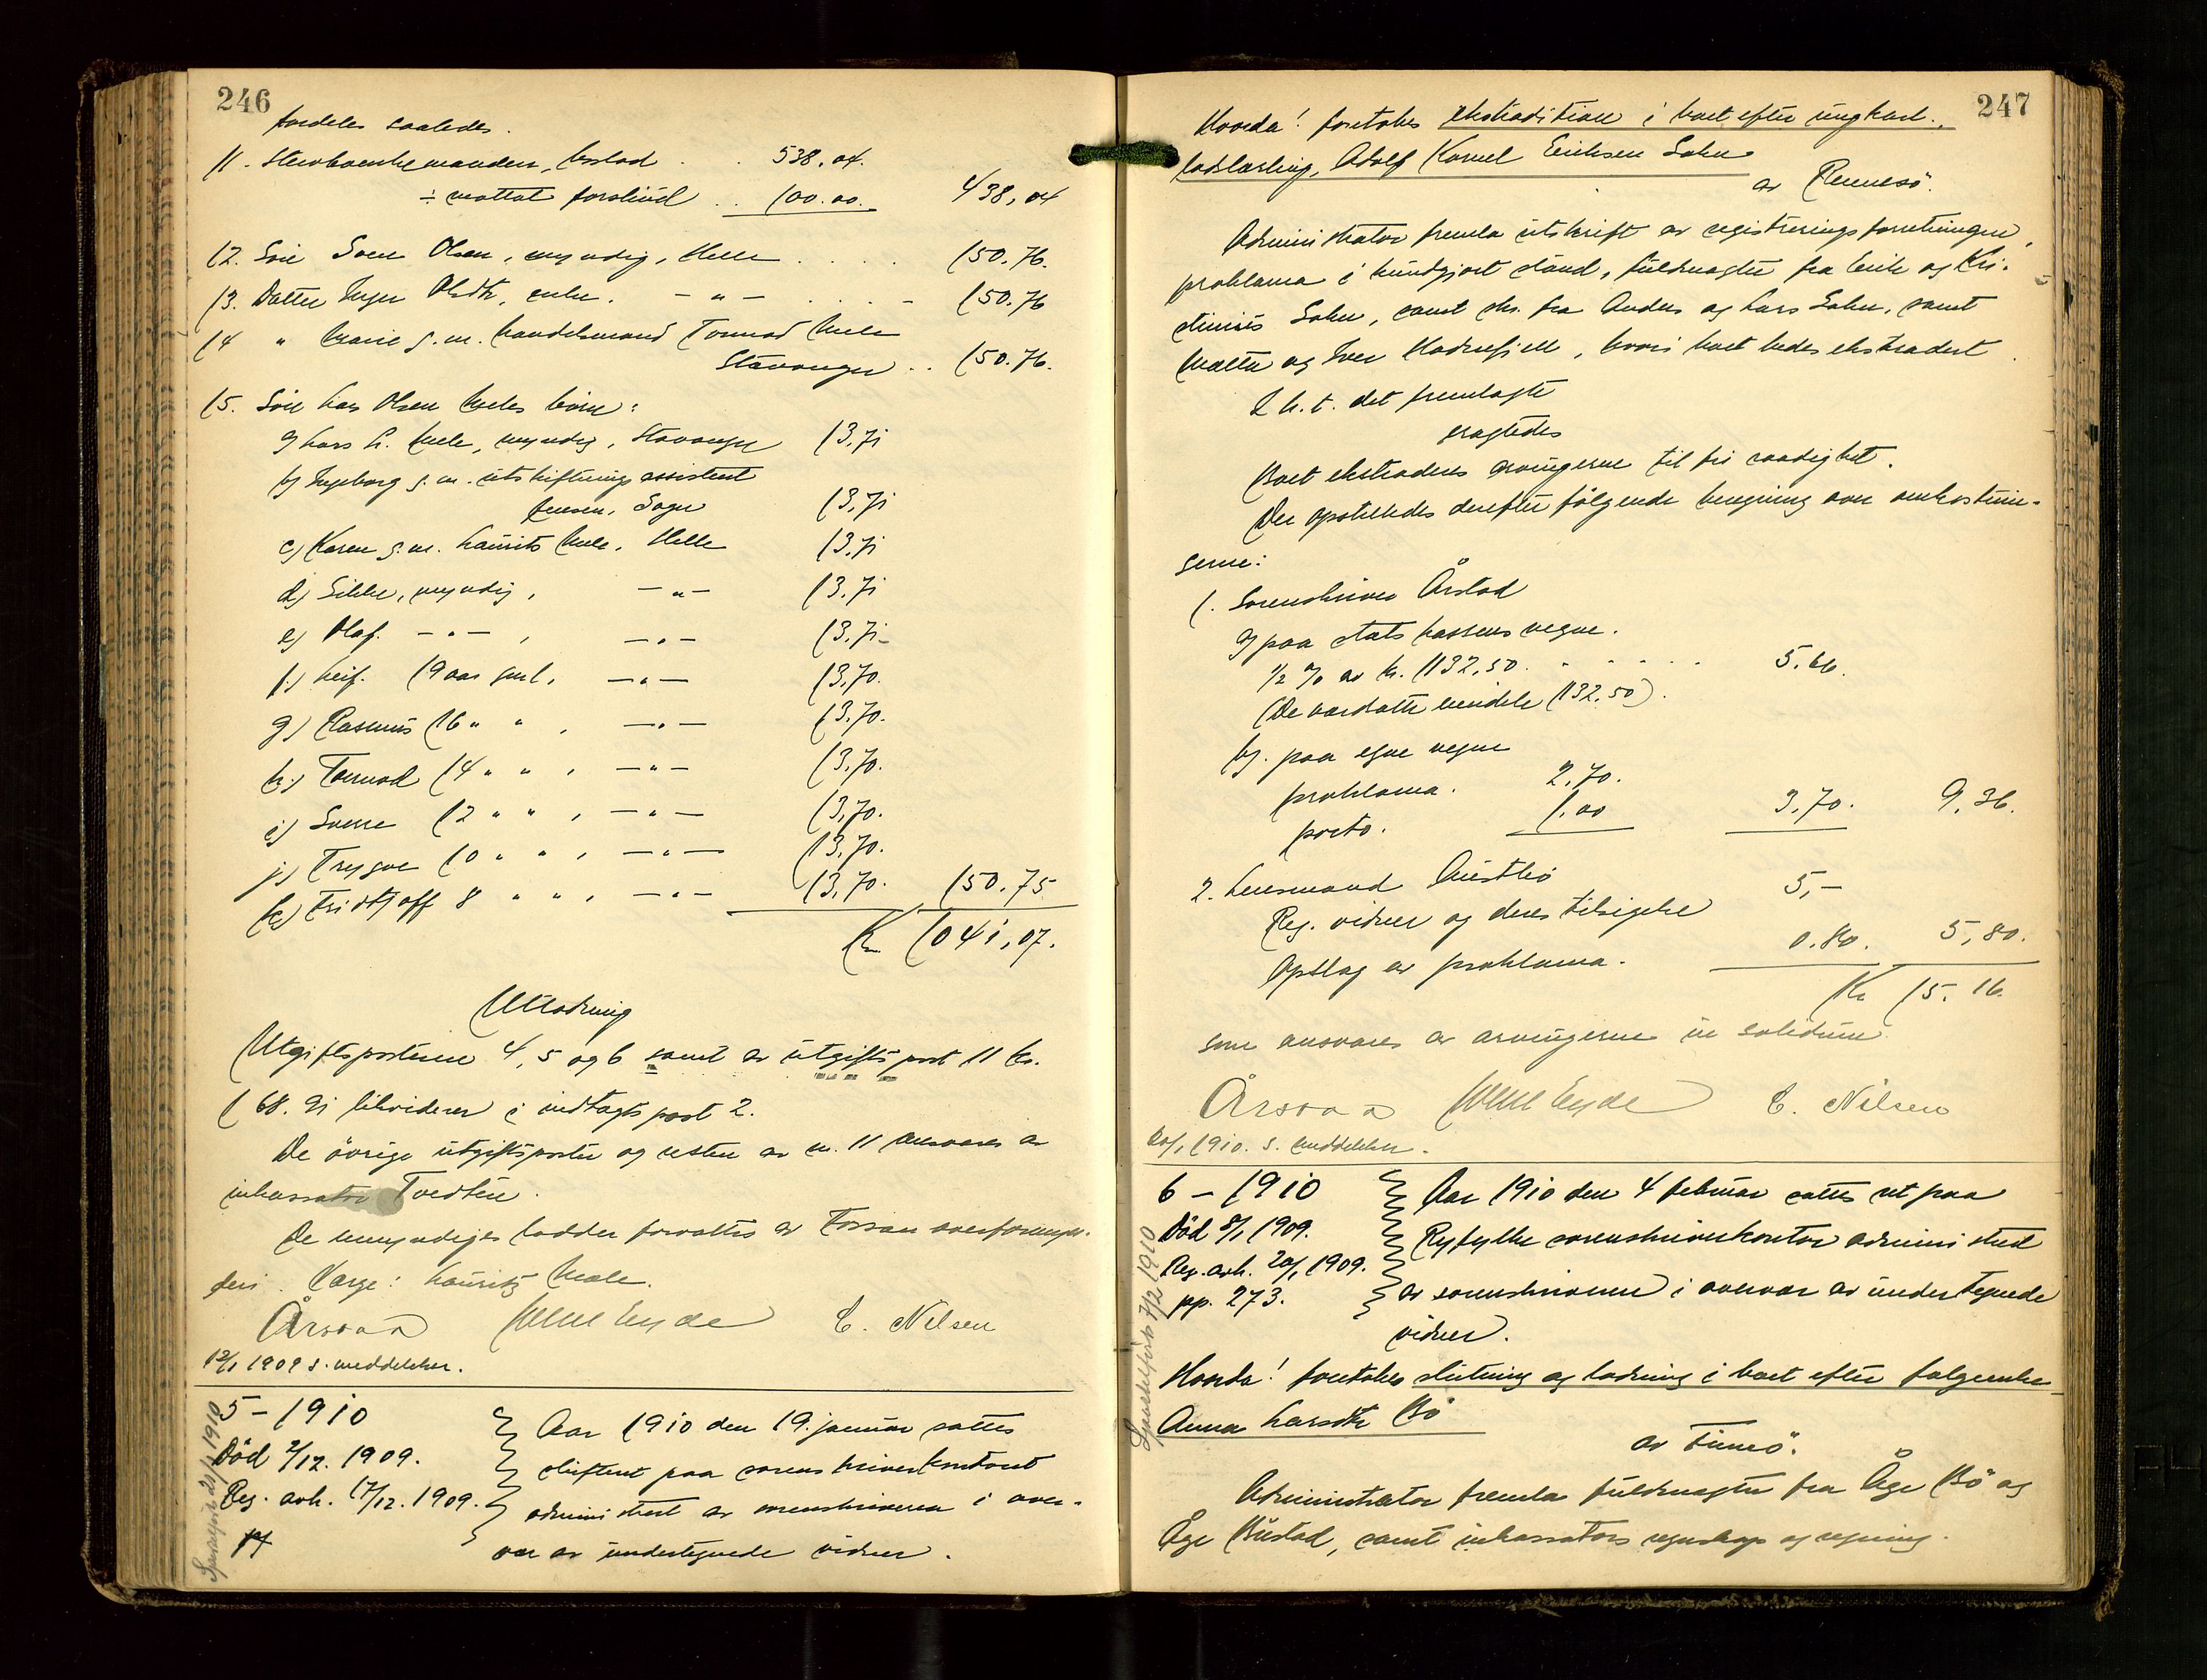 246
fordeles saaledes.
11. Sterboenkemanden, 538,04.
÷ mottat forskud .. 100.00. 438,04
12. Søn Sven Olsen, myndig, Helle . . . . 150.76.
13. Datter Inger Olsdtr, enke. — " — . . . - 150.76
14 " Marie g. m. handelsmand Tormod Mæle
Stavanger .. 150.76.
15. Søn Lars Olsen Mæles børn:
a) Lars L. Mæle, myndig, Stavanger 13,71
b) Ingeborg g. m. utskiftningsassistent
Jensen, Sogn 13,71
c) Karen g. m. Laurits Mæle, Helle 13,71
d) Sikke, myndig, — " — 13,71
e) Olaf. — " — , — " — 13,71
f.) Leif. 19 aar gml, — " — 13,70.
g) Rasmus 16 " " , — " — 13,70.
h.) Tormod 14 " " , — " — 13,70.
i) Sverre 12 " " , — " — 13,70.
j) Trygve 10 " " , — " — 13,70.
k) Fridtjoff 8 " " , — " — 13,70. 150.75
Kr 1041,07.
Utlodning
Utgiftsposterne 4, 5 og 6 samt av utgiftspost 11 kr.
168.91 likviderer i indtægtspost 2.
De øvrige utgiftsposter og resten av nr. 11 ansvares av
inkassator Tvedten.
De umyndiges lodder forvaltes av Fossan overformyn-
deri. Værge: Lauritz Mæle.
Årstad E. Nilsen
12/1 1909 s. meddelelser.
5 - 1910
Død 2/12. 1909.
Reg. avh. 17/12. 1909.
Aar 1910 den 19. januar sattes
skifteret paa sorenskriverkontoret
administrert av sorenskriveren i over-
vær av undertegnede vidner.
247
Hvorda! foretokes ekstradition i boet efter ungkarl.,
Adolf Kornel Eriksen Sokn
av Rennesø.
Administrator fremla utskrift av registreringsforretningen,
proklama i kundgjort stand, fuldmagter fra Erik og Kri-
stines Sokn, samt do. fra Anders og Lars Sokn, samt
Mætte og Iver Hodnefjell, hvori boet bedes ekstradert.
I h. t. det fremlagte
eragtedes
Boet ekstraderes arvingerne til fri raadighet.
Der opstilledes derefter følgende beregning over omkostnin-
gerne:
1. Sorenskriver Årstad
a) paa statskassens vegne.
1/2 % av kr. 1132,50. . . . . . 5.66.
(De avertatte eiendele 1132,50).
b). paa egne vegne
proklama. 2,70.
porto. 1.00 3,70. 9,36.
2. Lensmand Austbø
Reg. vidner og deres tilsigelse 5,—
Opslag av proklama. 0.80. 5,80.
Kr 15.16.
som ansvares av arvingerne in solidum.
Årstad E. Nilsen
20/1 1910. s. meddelelser.
6 - 1910
Død 8/1 1909.
Reg. avh. 20/1 1909.
pp. 273.
Aar 1910 den 4 februar sattes ret paa
Ryfylke sorenskriverkontor administrert
av sorenskriveren i overvær av undertegnede
vidner.
Hvorda! foretokes slutning og lodning i boet efter folgeenke
Anna Larsdtr Bø
av Finnø.
Administrator fremla fuldmagter fra Åge Bø og
Åge Bustad, samt inkassators regnskap og regning.